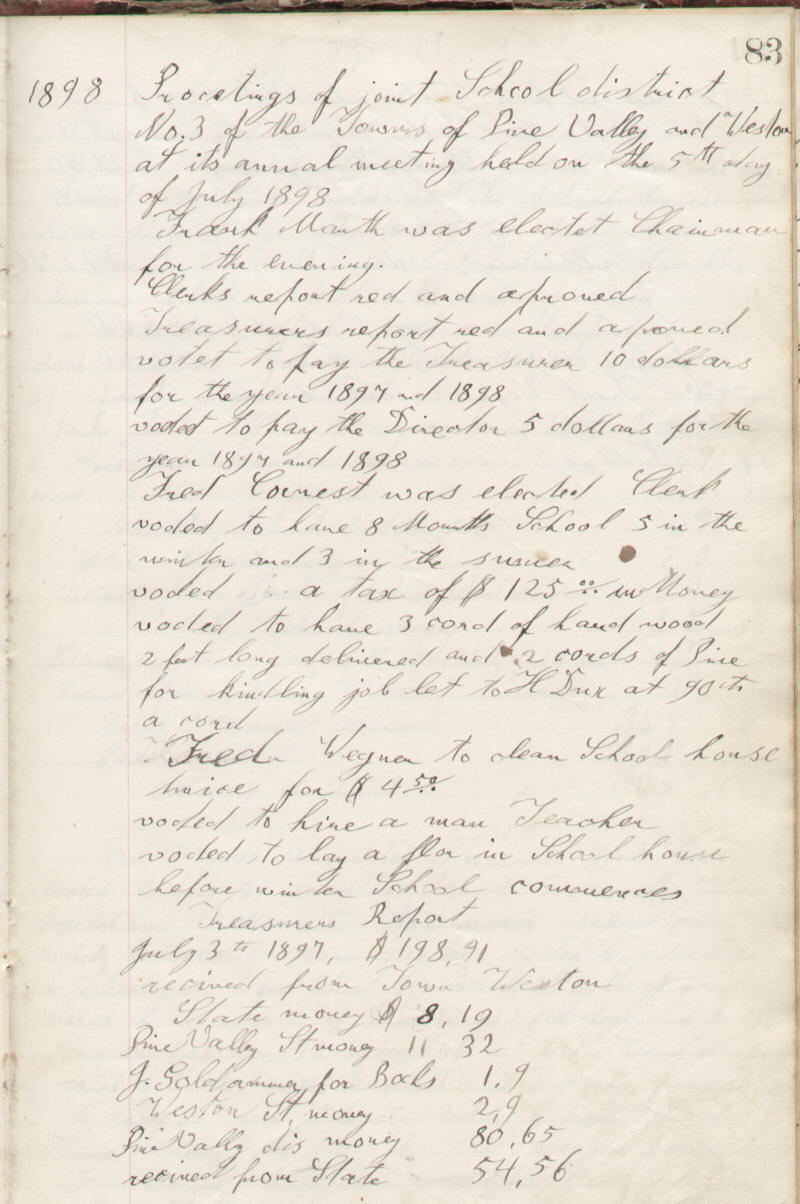 83
1898 Procetings of joint School district
No. 3 of the Towns of Pine Valley and Weston
at its annal meeting held on the 5th day
of July 1898
Frank Manth was electet Chairman
for the evening.
Clerks report red and aproved
Treasurers report red and aproved
votet to pay the Treasurer 10 dollars
for the year 1897 and 1898
voded to pay the Director 5 dollars for the
year 1897 and 1898
Fred Covnest was elected Clerk
voded to have 8 Months School 5 in the
winter and 3 in the sumer
voded a tax of $ 125 00 in Money
voded to have 3 cord of hard wood
2 feet long delivered and 2 cords of Pine
for kindling job let to H Dux at 90 cts
a cord
Fred Wegner to clean School house
twice for $ 4 50
voded to hire a man Teacher
voded to lay a flor in School house
before winter School commences
Treasurers Report
July 3th 1897, $ 198,91
recived from Town Weston
State money $ 8,19
Pine Valley St money 11 32
J. Goldammer for Books 1,9
Weston St, money 2,9
Pine Vally dis money 80,65
recived from State 54,56